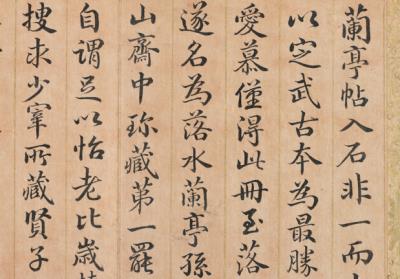 蘭亭帖入石非一而
以定武古本為最勝
愛慕僅得此冊至落
遂名為落水蘭亭孫
山齋中珎藏第一罷
自謂足以怡老比歳
捜求少宰所藏賢子